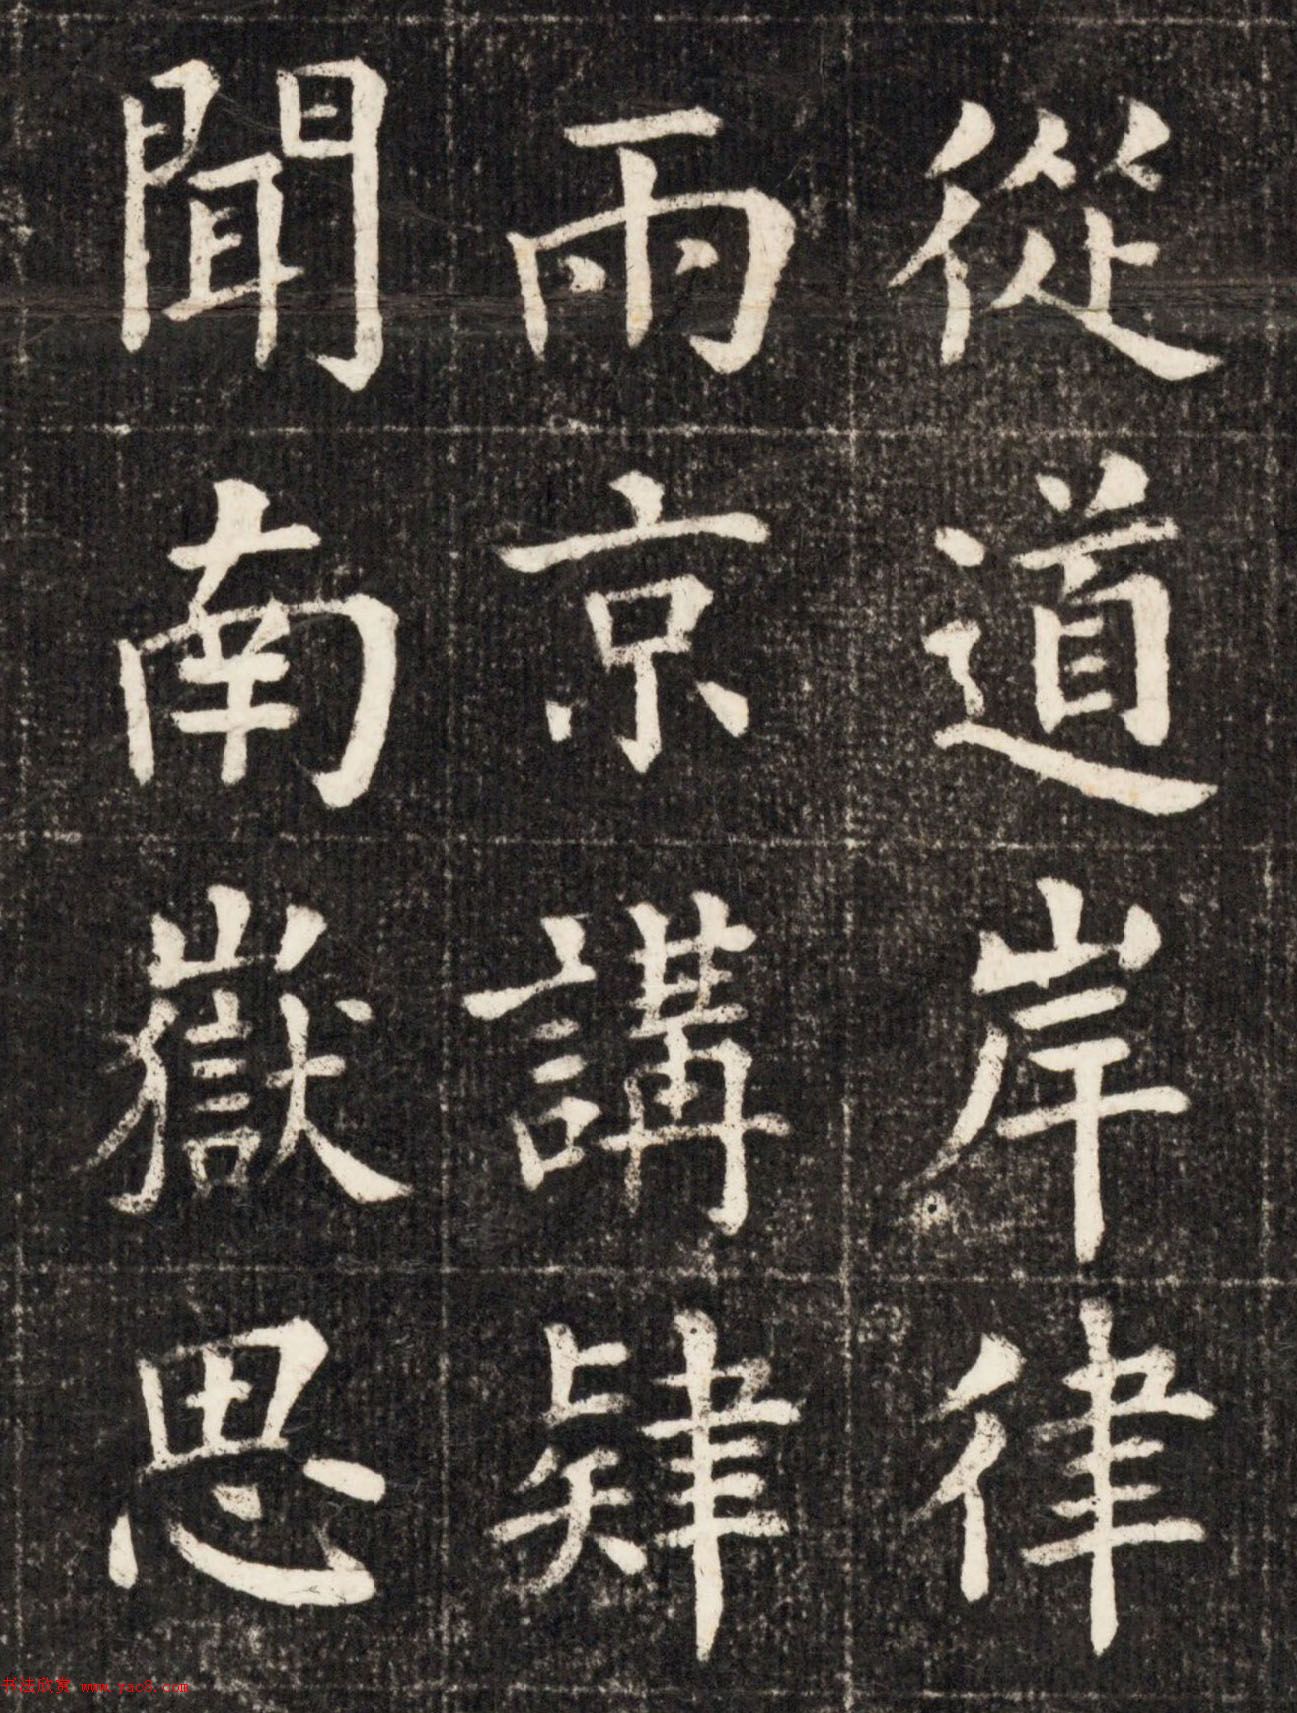 從道岸律
兩京講肄
聞南嶽思
书法欣赏 www.yac8.com